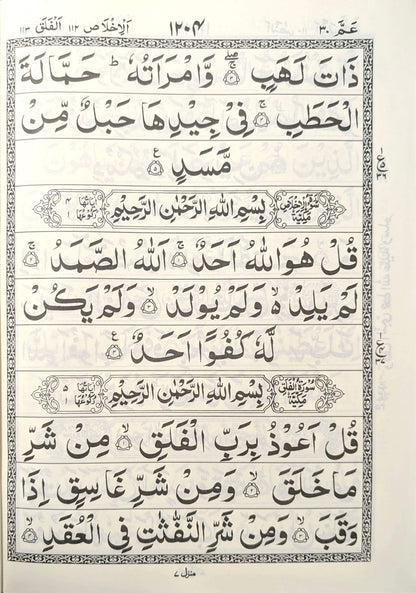 عَمَّ ٣٠ ١٢٠٤ اَلْاِخْلَاص ١١٢ اَلْفَلَق ١١٣
ذَاتَ لَهَبٍ ۚۖ ۝٣ وَّامْرَاَتُهٗ ؕ حَمَّالَةَ
الْحَطَبِ ۚ ۝٤ فِیْ جِیْدِهَا حَبْلٌ مِّنْ
مَّسَدٍ ۝٥ ع
سُوْرَةُ الْاِخْلَاصِ مَكِّيَّةٌ بِسْمِ اللهِ الرَّحْمٰنِ الرَّحِيْمِ اٰيَاتُهَا ٤ رُكُوْعُهَا ١
قُلْ هُوَ اللهُ اَحَدٌ ۚ ۝١ اَللهُ الصَّمَدُ ۚ ۝٢
لَمْ یَلِدْ ۙ۬ وَلَمْ یُوْلَدْ ۙ ۝٣ وَلَمْ یَكُنْ
لَّهٗ كُفُوًا اَحَدٌ ۝٤ ع
سُوْرَةُ الْفَلَقِ مَكِّيَّةٌ بِسْمِ اللهِ الرَّحْمٰنِ الرَّحِيْمِ اٰيَاتُهَا ٥ رُكُوْعُهَا ١
قُلْ اَعُوْذُ بِرَبِّ الْفَلَقِ ۙ ۝١ مِنْ شَرِّ
مَا خَلَقَ ۙ ۝٢ وَمِنْ شَرِّ غَاسِقٍ اِذَا
وَقَبَ ۙ ۝٣ وَمِنْ شَرِّ النَّفّٰثٰتِ فِی الْعُقَدِ ۙ ۝٤
منزل ٧